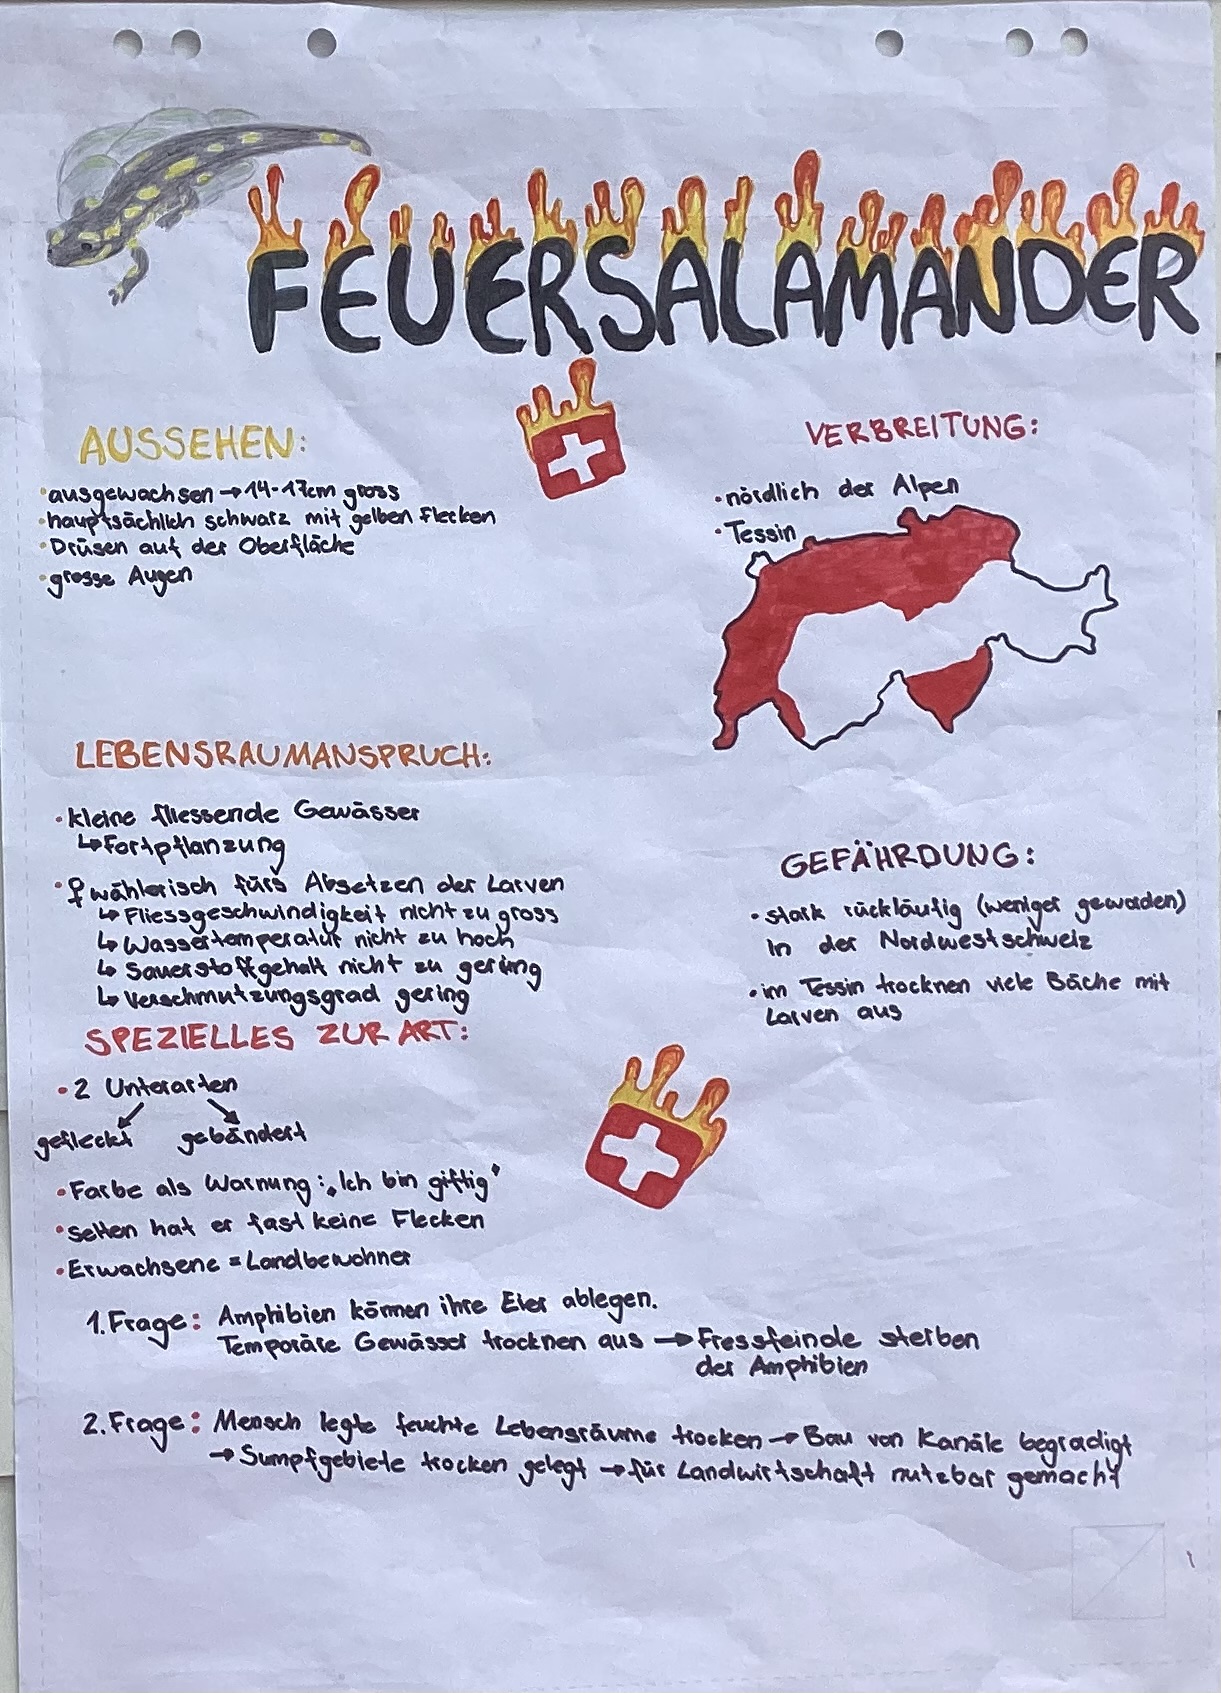 FEUERSALAMANDER
AUSSEHEN:
• ausgewachsen → 14-17cm gross
• hauptsächlich schwarz mit gelben Flecken
• Drüsen auf der Oberfläche
• grosse Augen
VERBREITUNG:
• nördlich der Alpen
• Tessin
LEBENSRAUMANSPRUCH:
• kleine fliessende Gewässer
↳ Fortpflanzung
• ♀ wählerisch fürs Absetzen der Larven
↳ Fliessgeschwindigkeit nicht zu gross
↳ Wassertemperatur nicht zu hoch
↳ Sauerstoffgehalt nicht zu gering
↳ Verschmutzungsgrad gering
GEFÄHRDUNG:
• stark rückläufig (weniger geworden)
in der Nordwestschweiz
• im Tessin trocknen viele Bäche mit
Larven aus
SPEZIELLES ZUR ART:
• 2 Unterarten
gefleckt gebändert
• Farbe als Warnung: „Ich bin giftig"
• selten hat er fast keine Flecken
• Erwachsene = Landbewohner
1. Frage: Amphibien können ihre Eier ablegen.
Temporäre Gewässer trocknen aus → Fressfeinde sterben
der Amphibien
2. Frage: Mensch legte feuchte Lebensräume trocken → Bau von Kanäle begradigt
→ Sumpfgebiete trocken gelegt → für Landwirtschaft nutzbar gemacht